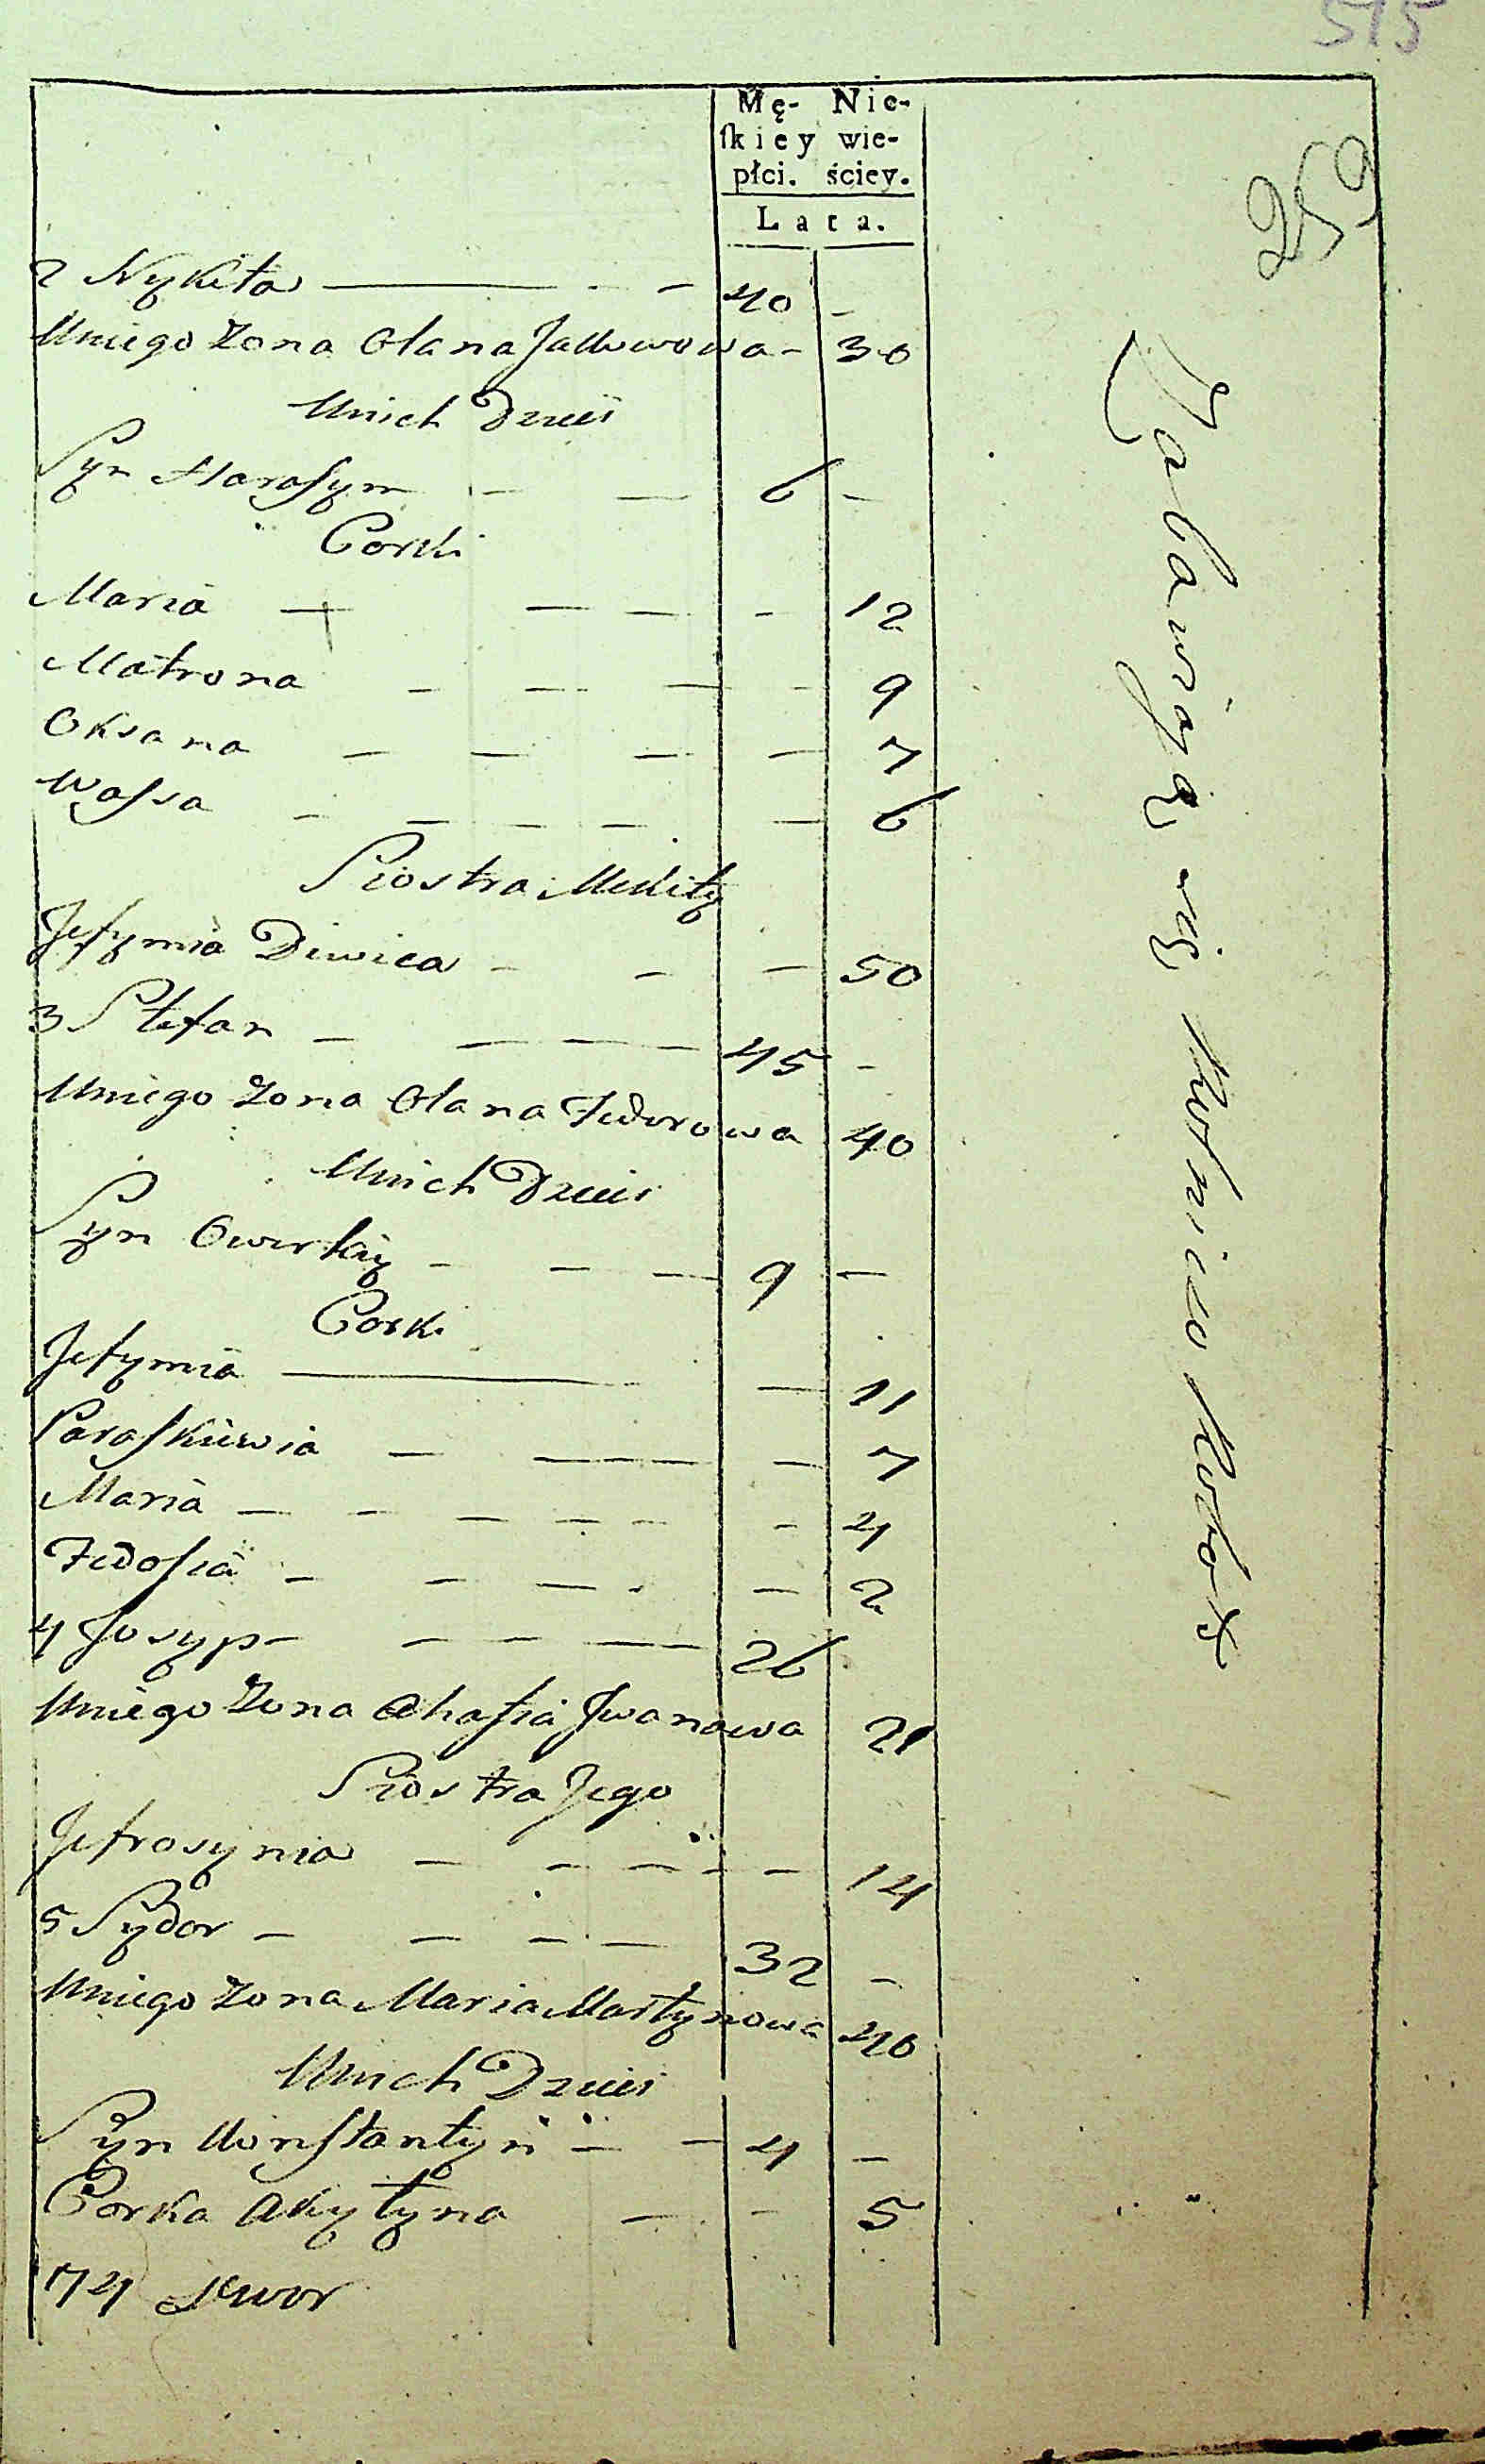 515
259
Mę- Nie-
skiey wie-
płci. ściey.
Lata.
2 Nykita — — 40 —
Uniego Zona Olana Jakowowa - 30
Unich Dzieci
Syn Harasym — — 6 —
Corki
Maria — — — - 12
Matrona — — — - 9
Oksana — — — — 7
Wassa — — — — — 6
Siostra Mikity
Jefymia Diwica — — — 50
3 Stefan — — — — 45 -
Uniego Zona Olana Fedorowa 40
Unich Dzieci
Syn Owerkiy — — — 9 —
Corki
Jefymia — — 11
Paraskiewia — — — 7
Maria — — — — — - 4
Fedosia — — — - — 2
4 Josyp — — — — 26
Uniego Zona Ahafia Jwanowa 21
Siostra Jego
Jefrosynia — — — — — 14
5 Sydor — — — — 32 -
Uniego Zona Maria Martynowa 40
Unich Dzieci
Syn Konstantyn — — 4 —
Corka Akylyna — - 5
74 Dwor
Zabawiaią się